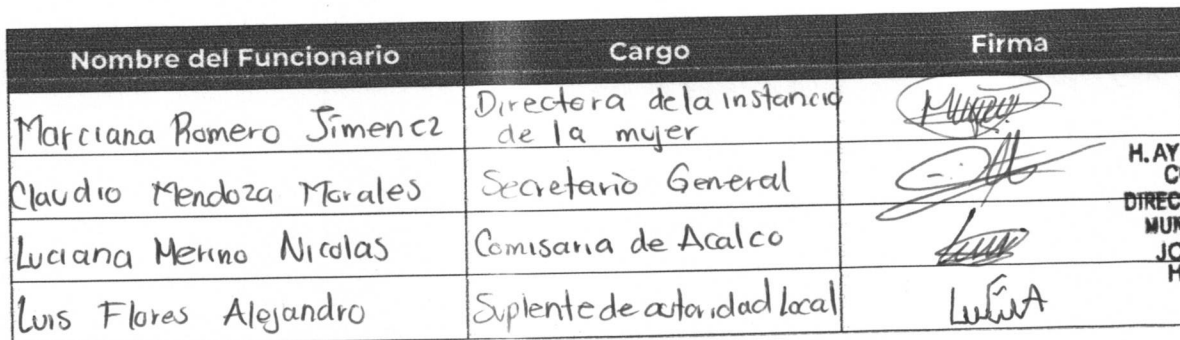 Nombre del Funcionario Cargo Firma
Marciana Romero Jimenez Directora de la instancia
de la mujer
Claudio Mendoza Morales Secretario General
Luciana Merino Nicolas Comisaria de Acalco
Luis Flores Alejandro Suplente de autoridad Local
H. AY
C
DIREC
MUN
JO
H